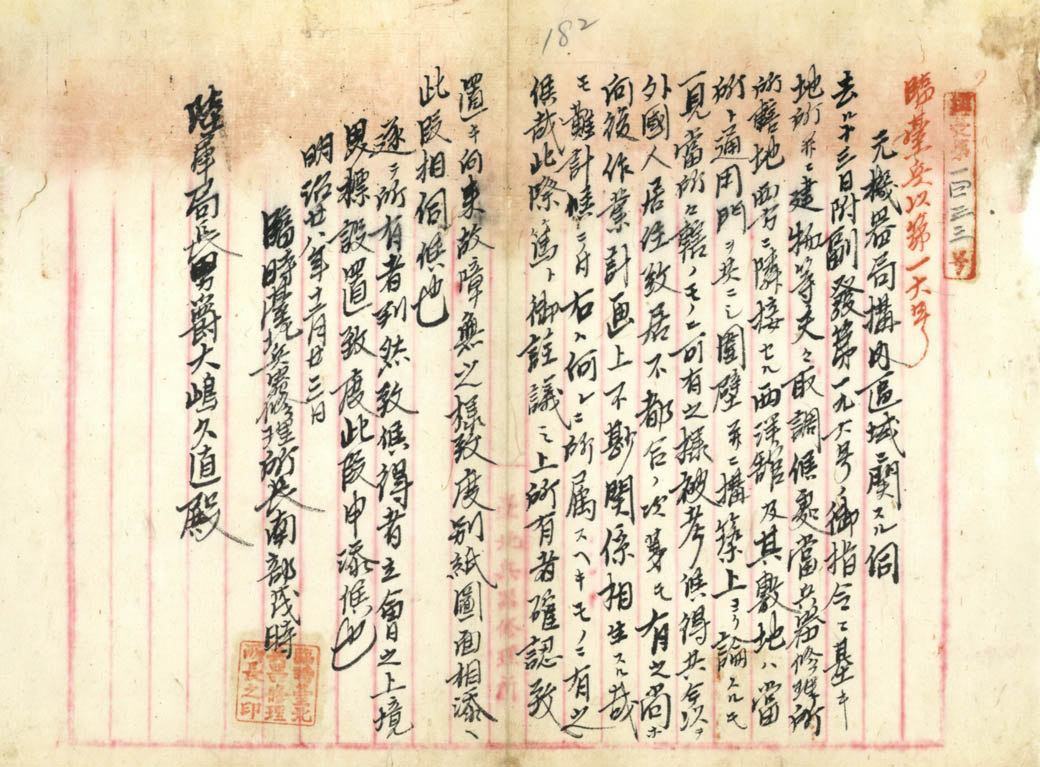 182
臨臺兵以第一六号
第一四三三号
元機器局構内區域ニ関スル伺
去ル十三日附副發第一九六号ノ御指令ニ基キ
地所並ニ建物等夫々取調候處當兵器修理所
所轄地西方ニ隣接セル西洋舘及其敷地ハ當
所ト通用門ヲ共ニシ圍壁並ニ構築上ヨリ論スルモ
一見當所之轄ノモノニ可有之様被考候得共今以テ
外國人居住致居不都合ノ次第モ有之尚ホ
向後作業計画上不尠関係相生スル哉
モ難計候ニ付右ハ何レニ所属スヘキモノニ有之
候哉此際篤ト御詮議之上所有者確認致
置キ向来故障無之様致度別紙圖面相添ヘ
此段相伺候也
逐テ所有者判然致候得者立會之上境
界標設置致度此段申添候也
明治廿八年十二月廿三日
臨時臺北兵器修理所長南部茂時
陸軍局長男爵大嶋久直殿
臨時臺北
兵器修理
所長之印
臺北兵器修理所